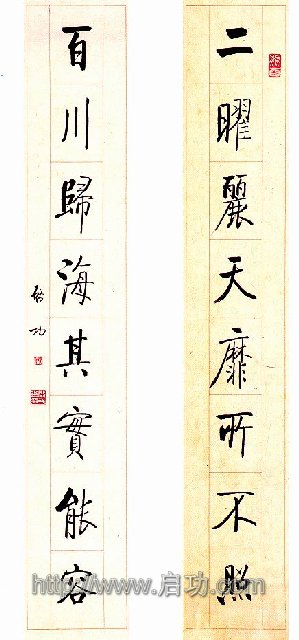 二曜麗天靡所不照
百川歸海其實能容
啓功
http://www.启功.com